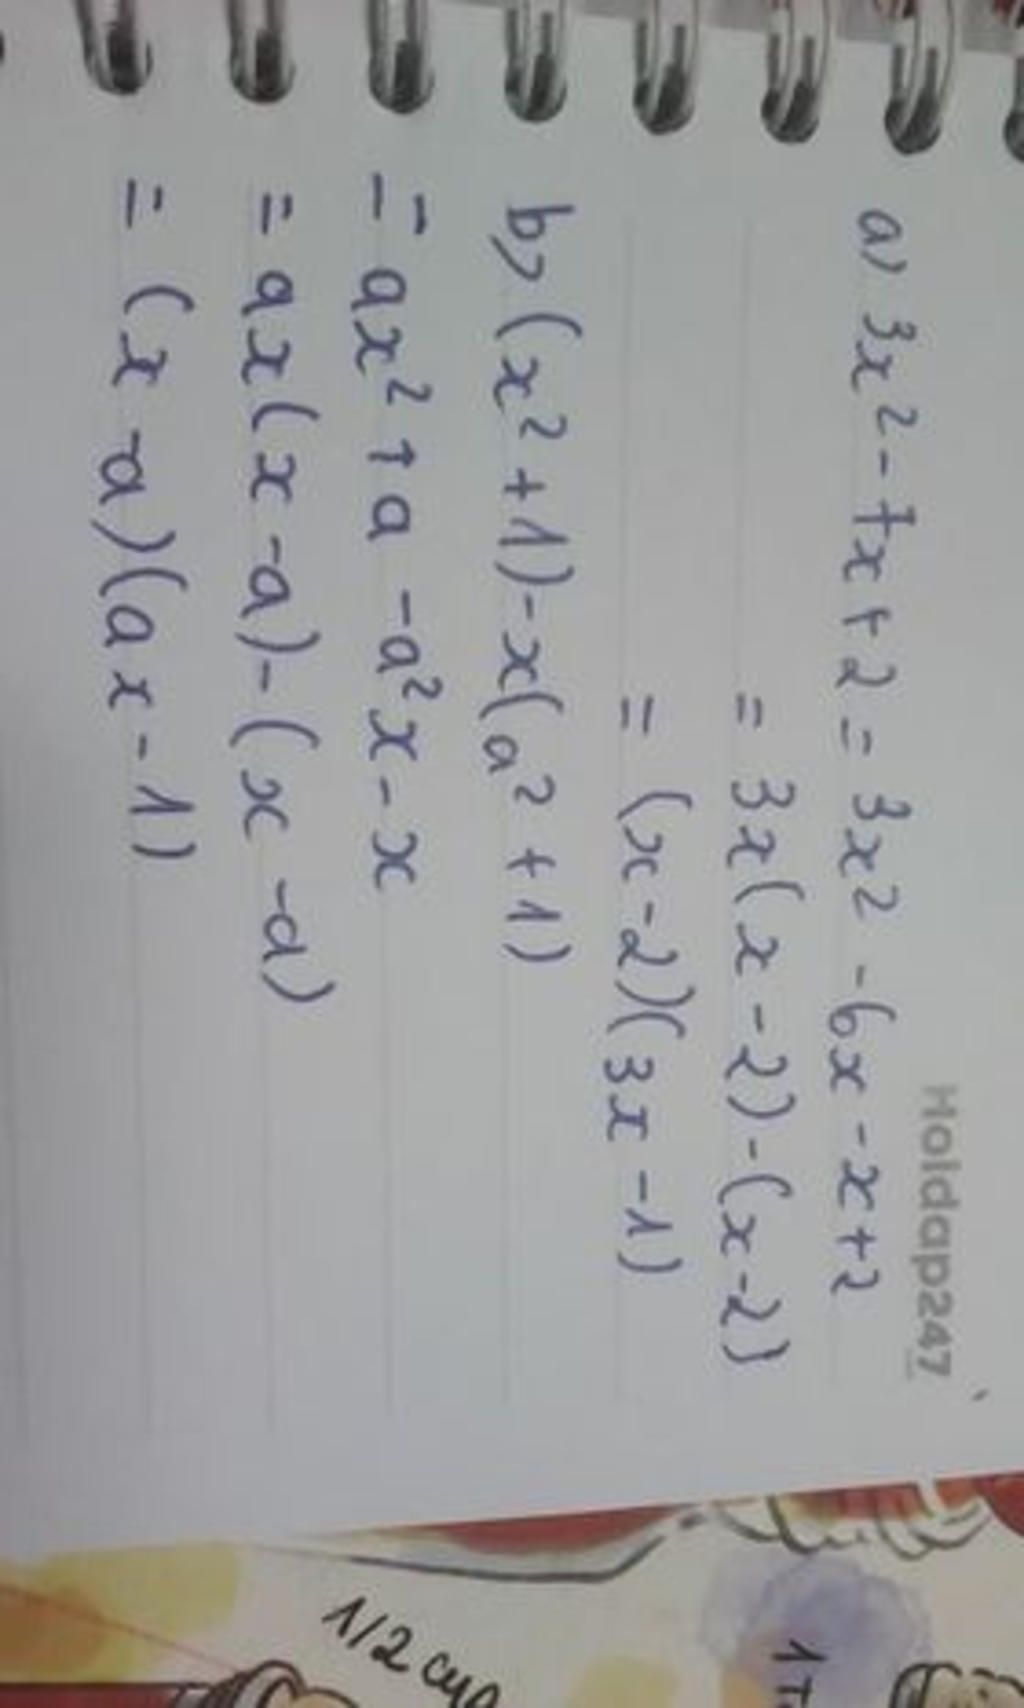 Hoidap247
a) 3x² - 7x + 2 = 3x² - 6x - x + 2
= 3x(x - 2) - (x - 2)
= (x - 2)(3x - 1)
b) (x² + 1) - x(a² + 1)
= ax² + a - a²x - x
= ax(x - a) - (x - a)
= (x - a)(ax - 1)
1/2 cup